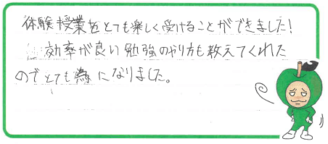 体験授業をとても楽しく受けることができました!
効率が良い勉強のやり方も教えてくれた
のでとても為になりました。